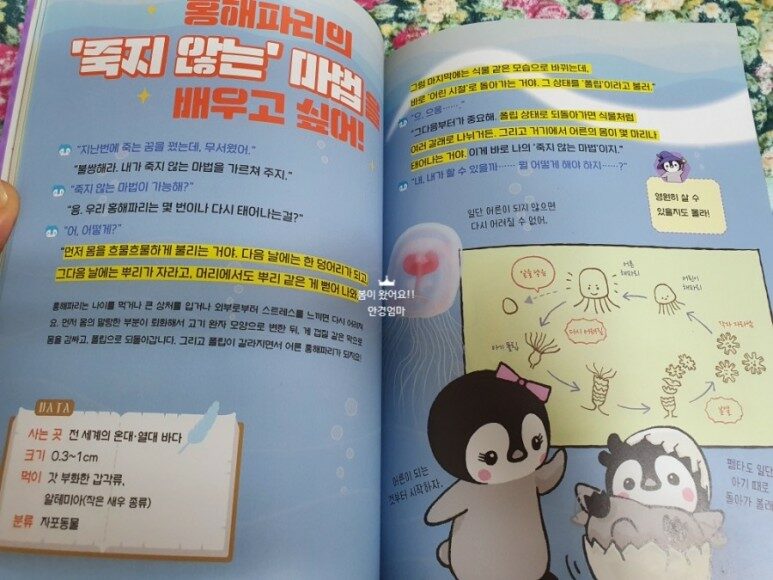 홍해파리의
'죽지 않는' 마법을
배우고 싶어!
"지난번에 죽는 꿈을 꿨는데, 무서웠어."
"불쌍해라. 내가 죽지 않는 마법을 가르쳐 주지."
"죽지 않는 마법이 가능해?"
"응. 우리 홍해파리는 몇 번이나 다시 태어나는걸?"
"어, 어떻게?"
"먼저 몸을 흐물흐물하게 불리는 거야. 다음 날에는 한 덩어리가 되고
그다음 날에는 뿌리가 자라고, 머리에서도 뿌리 같은 게 뻗어 나와
홍해파리는 나이를 먹거나 큰 상처를 입거나 외부로부터 스트레스를 느끼면 다시 어려져
요. 먼저 몸의 말랑한 부분이 퇴화해서 고기 완자 모양으로 변한 뒤, 게 껍질 같은 막으로
몸을 감싸고, 폴립으로 되돌아갑니다. 그리고 폴립이 갈라지면서 어른 홍해파리가 되지요!
DATA
사는 곳 전 세계의 온대·열대 바다
크기 0.3~1cm
먹이 갓 부화한 갑각류,
알테미아(작은 새우 종류)
분류 자포동물
그럼 마지막에는 식물 같은 모습으로 바뀌는데,
바로 '어린 시절'로 돌아가는 거야. 그 상태를 '폴립'이라고 불러."
"으, 으응……."
"그다음부터가 중요해. 폴립 상태로 되돌아가면 식물처럼
여러 갈래로 나뉘거든. 그리고 거기에서 어른의 몸이 몇 마리나
태어나는 거야. 이게 바로 나의 '죽지 않는 마법'이지."
"내, 내가 할 수 있을까…… 뭘 어떻게 해야 하지……?"
영원히 살 수
있을지도 몰라!
일단 어른이 되지 않으면
다시 어려질 수 없어.
어른
해파리
어린이
해파리
다시 어려짐
아기 폴립
봄이 왔어요!!
안경엄마
어른이 되는
것부터 시작하자.
펭타도 일단
아기 때로
돌아가 볼래